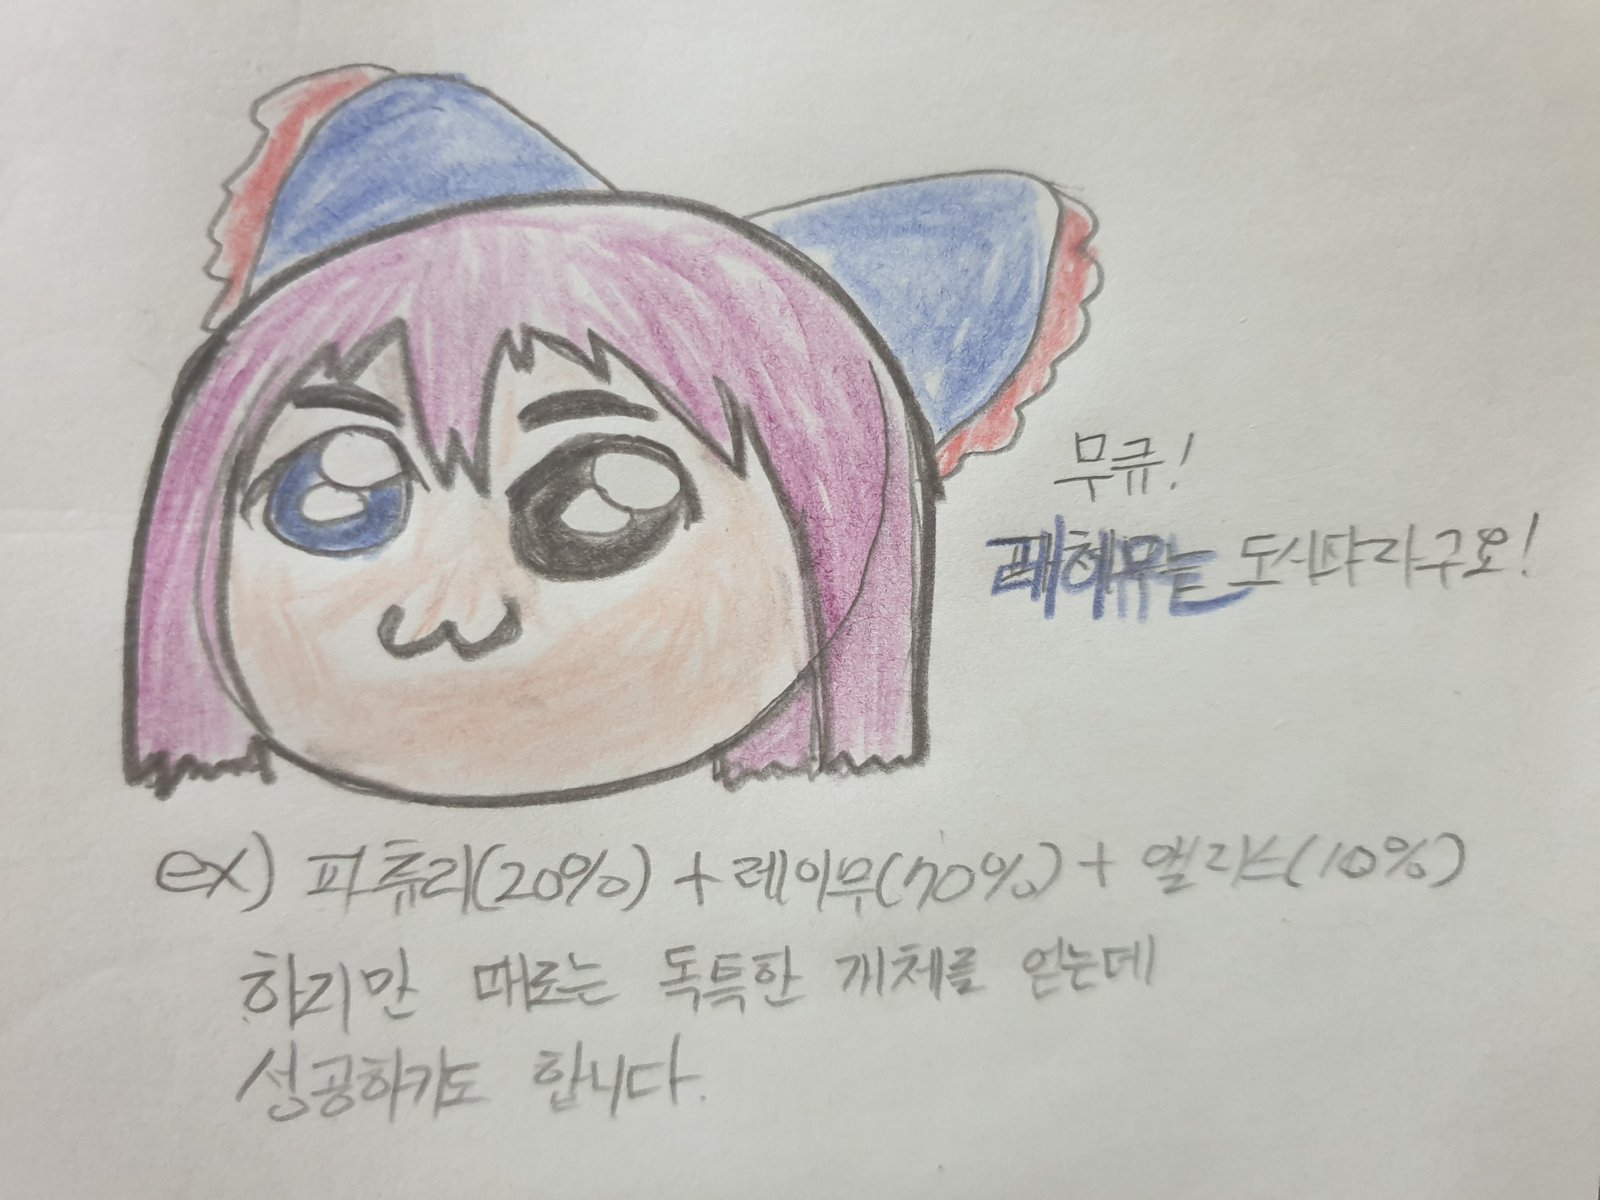 무큐!
패체무는 도시파라구요!
ex) 파츄리(20%) + 레이무(70%) + 앨리스(10%)
하지만 때로는 독특한 개체를 얻는데
성공하기도 합니다.